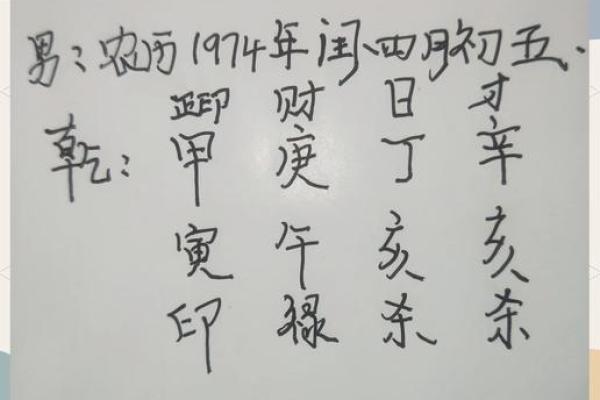 男：农历1974年闰四月初五.
正印 财 日 才
乾：甲 庚 丁 辛
寅 午 亥 亥
印 禄 杀 杀